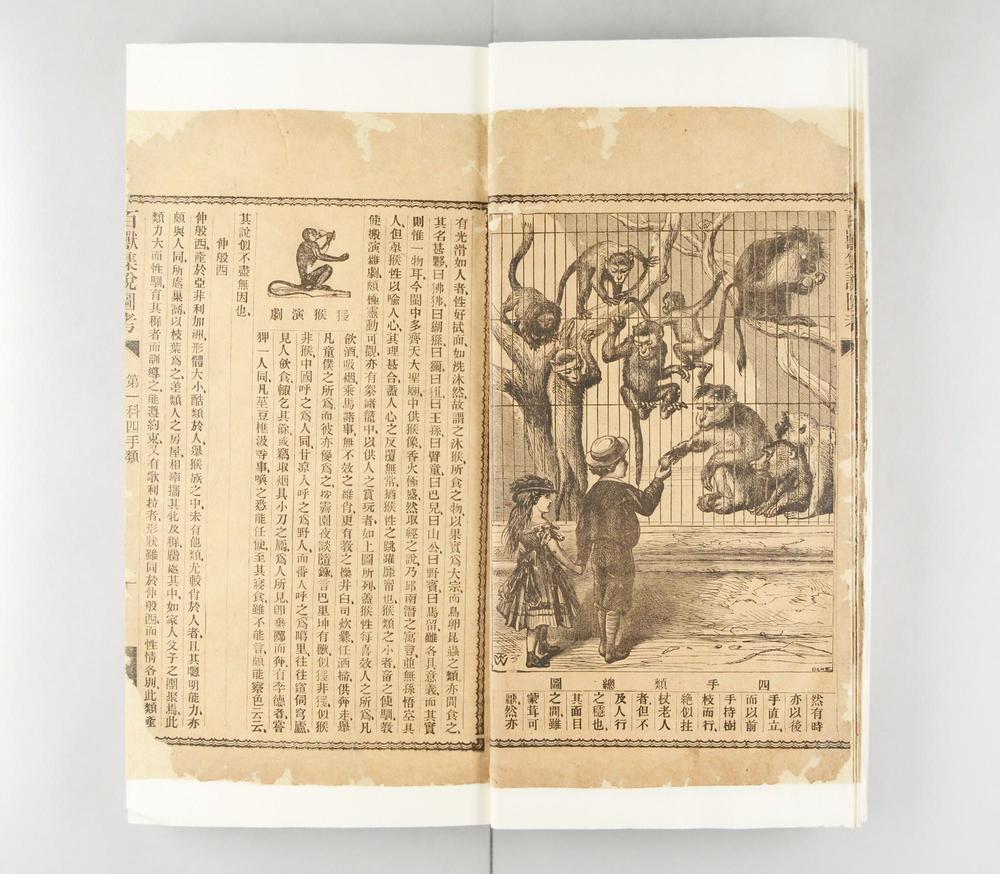 四手類總圖
然有時
亦以後
手直立、
而以前
手持樹
枝而行、
絕似拄
杖老人
者、但不
及人行
之穩也、
其面目
之間雖
蒙茸可
厭、然亦
有光滑如人者、性好拭面、如洗沐然、故謂之沐猴、所食之物、以果實爲大宗、而鳥卵昆蟲之類、亦間食之、
其名甚夥、曰狒狒、曰猢猻、曰獼、曰狙、曰王孫、曰臂童、曰巴兒、曰山公、曰野賓、曰馬留、雖各具意義、而其實
則惟一物耳、今閩中多齊天大聖廟、中供猴像、香火極盛、然取經之說、乃邱南潛之寓言、並無孫悟空其
人、但舉猴性以喻人心、其理甚合、蓋人心之反覆無常、猶猴性之跳躍靡甯也、猴類之小者、畜之使馴、教
使搬演雜劇、頗極靈動可觀、亦有柴諸籠中、以供人之賞玩者、如上圖所列、蓋猴性每喜效人之所爲、凡
猨猴演劇
飲酒吸烟、乘馬諸事、無不效之維肖、更有教之操井臼、司炊爨、任洒掃、供奔走、舉
凡童僕之所爲、而彼亦優爲之、按霽園夜談隨錄、言巴里坤有獸似猨非猨、似猴
非猴、中國呼之爲人同、甘涼人呼之爲野人、而番人呼之爲噶里、往往窺伺穹廬、
見人飲食、輒乞其餘、或竊取烟具小刀之屬、爲人所見、卽棄擲而奔、有李德者、嘗
㹨一人同、凡莝豆樵汲等事、喚之悉能任使、至其寢食、雖不能言、頗能察色云云、
其說似不盡無因也、
伸般西
伸般西、產於亞非利加洲、形體大小、酷類於人、舉猴族之中、未有他類、尤較肖於人者、且其聰明能力、亦
頗與人同、所處巢窩、以枝葉爲之、差類人之房屋、相率攜其牝及稺、豁處其中、如家人父子之團聚焉、此
類力大而性馴、育其稺者而訓導之、能遵約束、又有歌利拉者、形狀雖同於伸般西、而性情各別、此類產
百獸集說圖考
第一科四手類